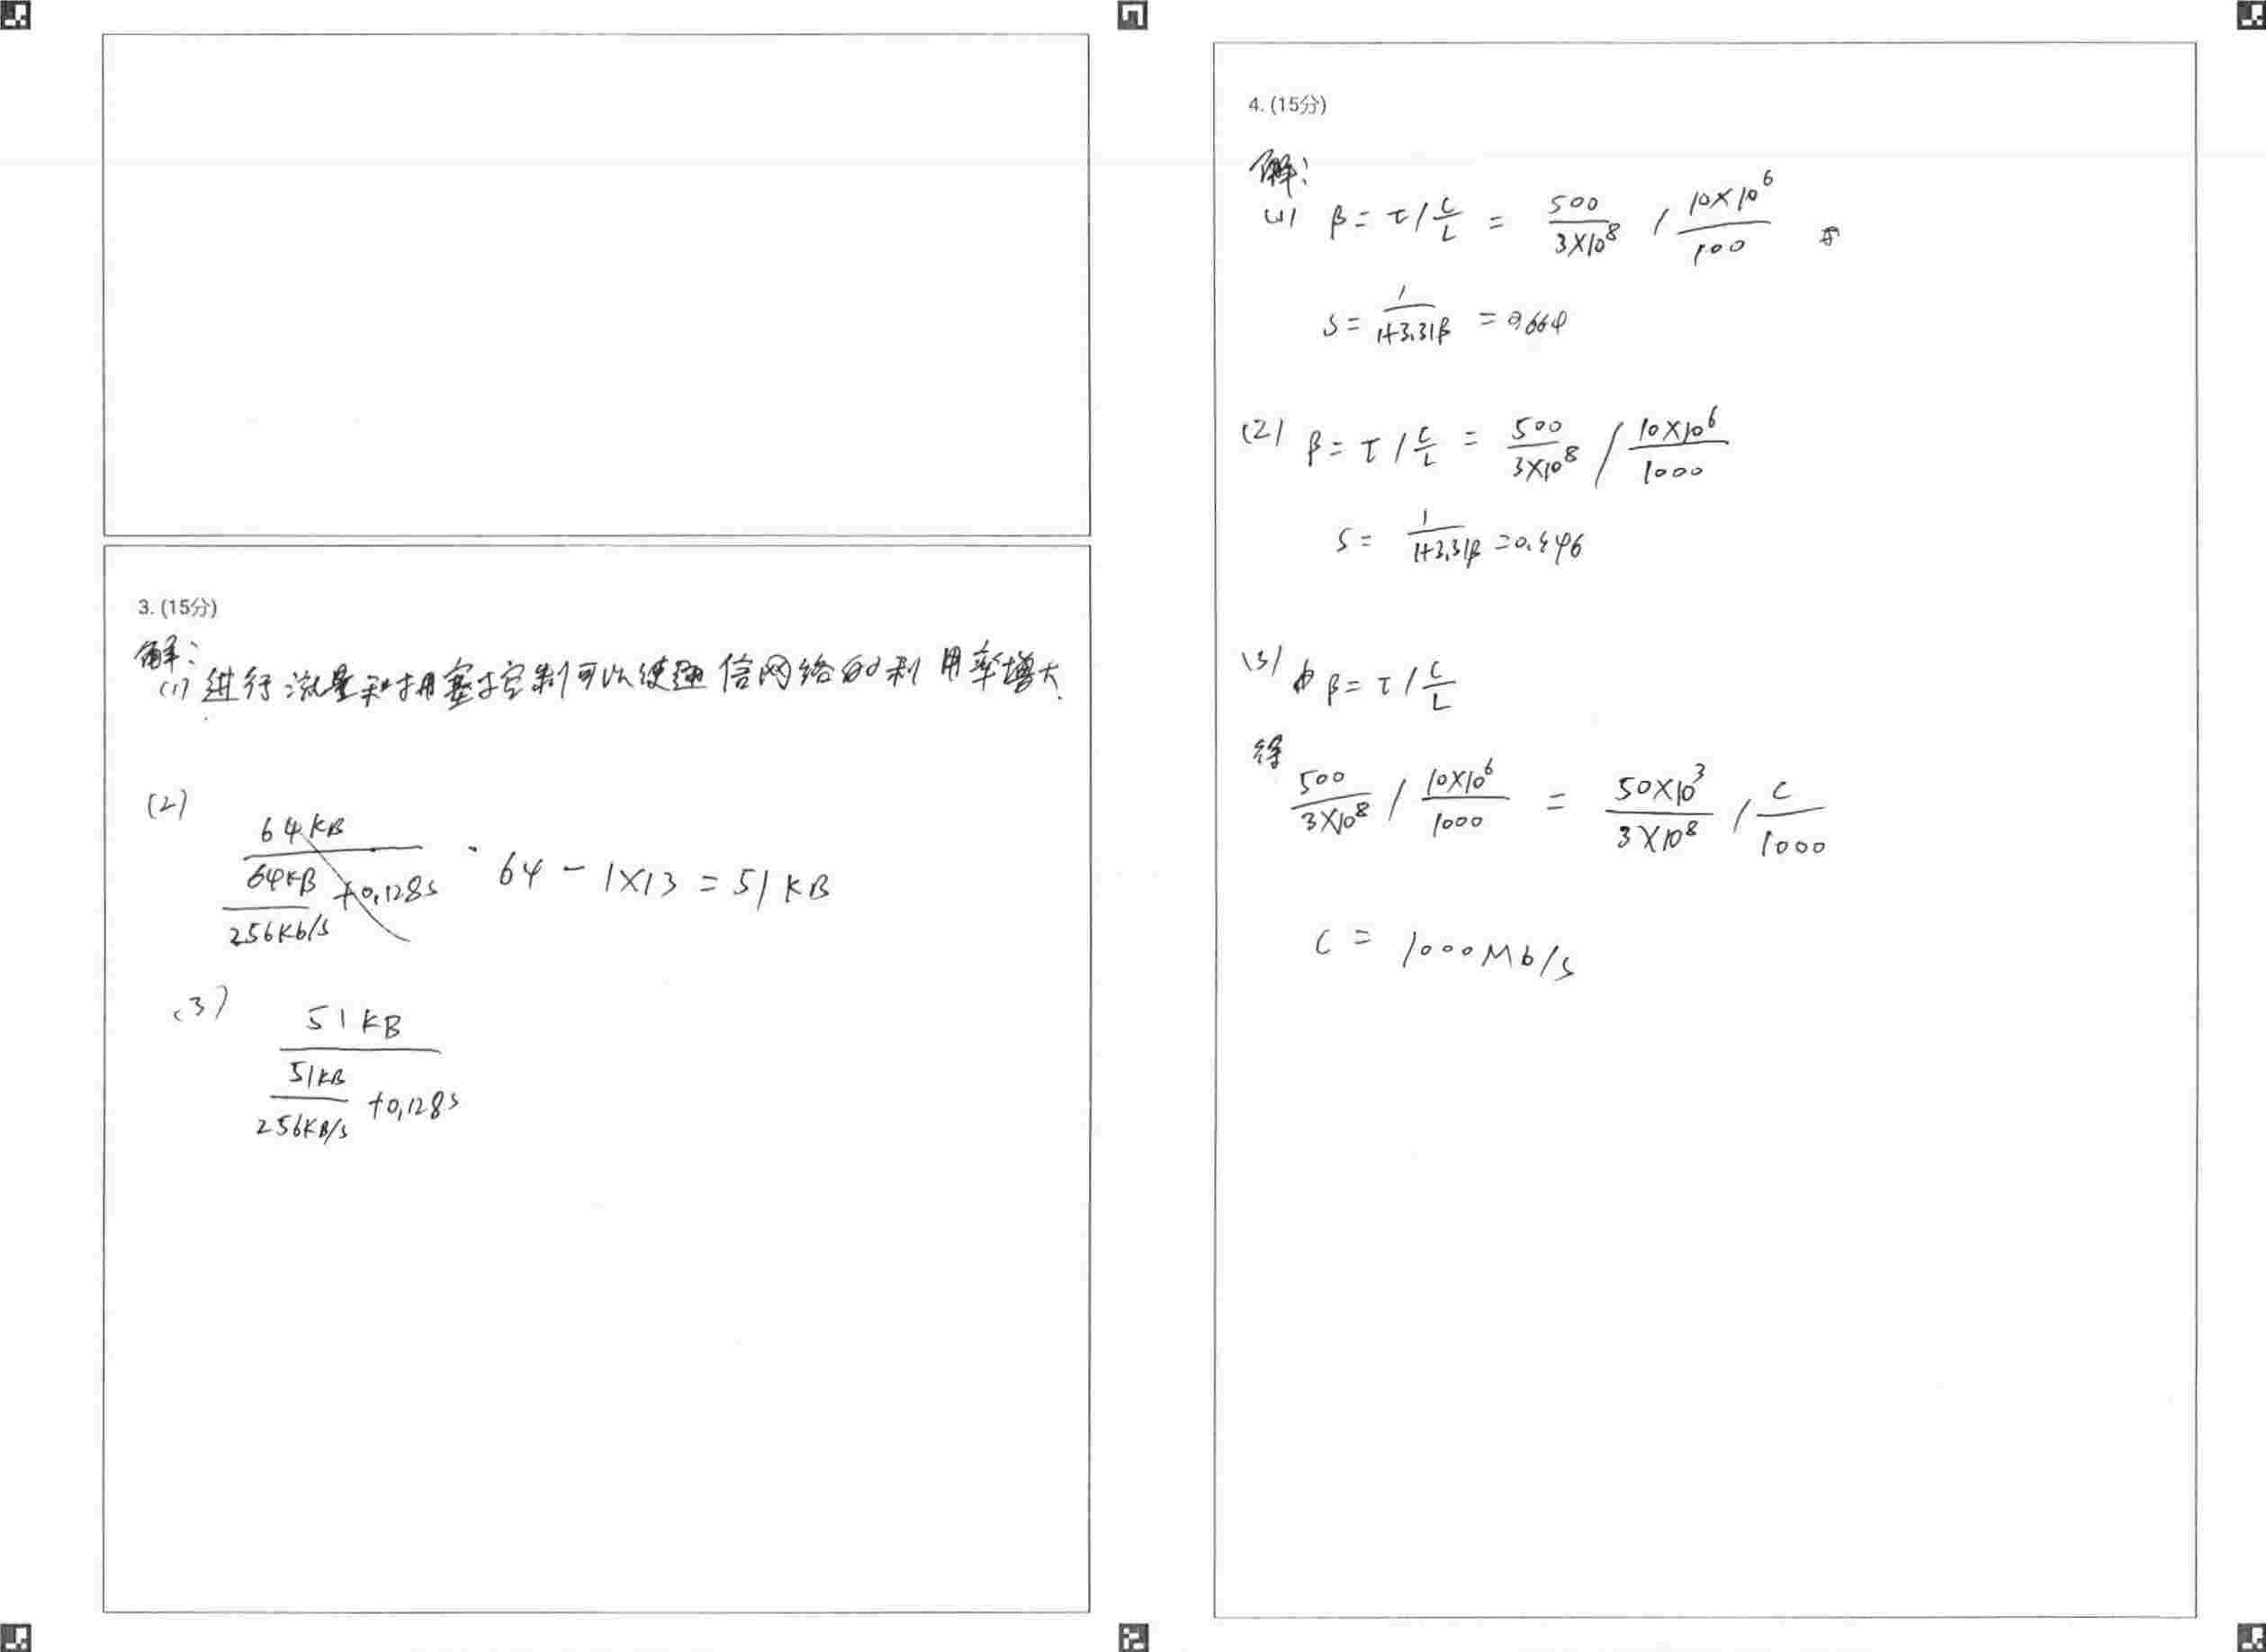 3. (15分)
解:
(1) 进行流量和拥塞控制可以使通信网络的利用率增大.
(2)
64KB
64KB
256Kb/s
+0.128s
64 - 1×13 = 51KB
(3)
51KB
51KB
256KB/s
+0.128s
4. (15分)
解:
(1) β = τ / C/L = 500/3×10⁸ / 10×10⁶/100
S = 1/1+3.31β = 0.664
(2) β = τ / C/L = 500/3×10⁸ / 10×10⁶/1000
S = 1/1+3.31β
(3) 由 β = τ / C/L
得
500/3×10⁸ / 10×10⁶/1000 = 50×10³/3×10⁸ / C/1000
C = 1000Mb/s